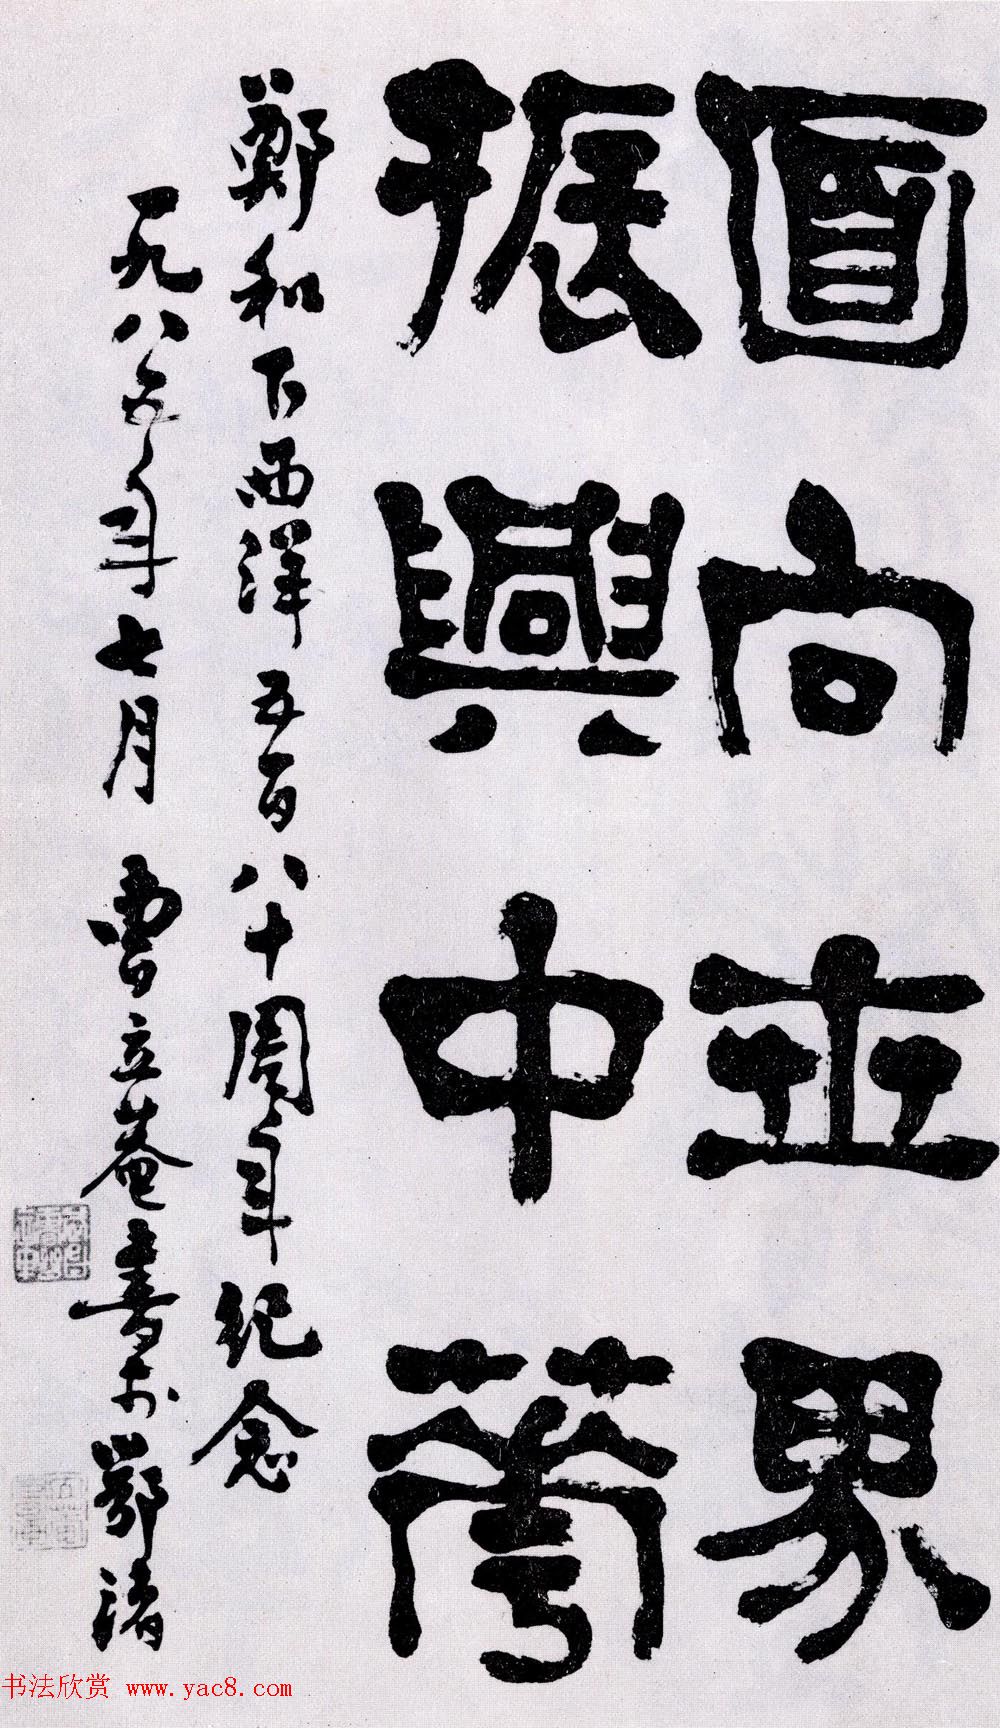 面向世界
振興中華
鄭和下西洋五百八十周年纪念
一九八五年七月 曹立菴書於鄂渚
书法欣赏 www.yac8.com